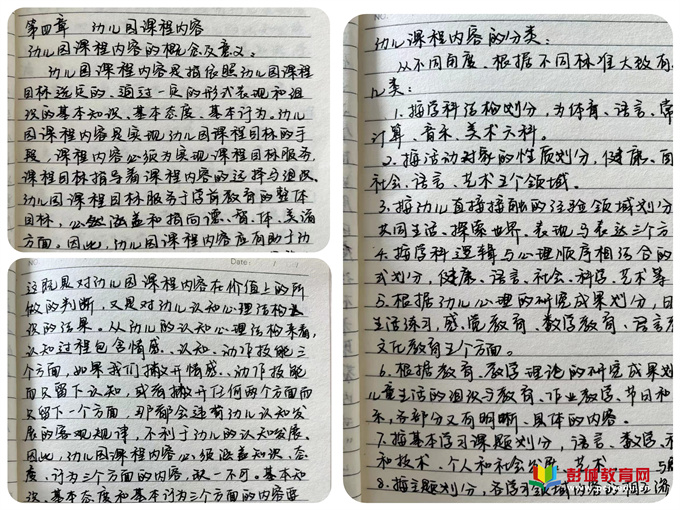 第四章 幼儿园课程内容
幼儿园课程内容的概念及意义:
幼儿园课程内容是指依照幼儿园课程
目标选定的、通过一定的形式表现和组
织的基本知识、基本态度、基本行为。幼儿
园课程内容是实现幼儿园课程目标的手
段,课程内容必须为实现课程目标服务,
课程目标指导着课程内容的选择与组织。
幼儿园课程目标服务于学前教育的整体
目标,必然涵盖和指向德、智、体、美诸
方面。因此,幼儿园课程内容应有助于幼
Date:
这既是对幼儿园课程内容在价值上的所
做的判断,又是对幼儿认知心理结构
的结果。从幼儿的认知心理结构来看,
认知过程包含情感、认知、动作技能三
个方面,如果我们撇开情感、动作技能
而只留下认知,或者撇开任何两个方面而
只留下一个方面,那都会违背幼儿认知发
展的客观规律,不利于幼儿的认知发展。
因此,幼儿园课程内容必须涵盖知识、态
度、行为三个方面的内容,缺一不可。基本知
识、基本态度和基本行为三个方面的内容要
NO.
幼儿课程内容的分类:
从不同角度、根据不同标准大致有
几类:
1.按学科结构划分,为体育、语言、常
计算、音乐、美术六科。
2.按活动对象的性质划分,健康、
社会、语言、艺术五个领域。
3.按幼儿直接接触的经验领域划分
共同生活、探索世界、表现与表达三个方
4.按学科逻辑与心理顺序相结合的
式划分,健康、语言、社会、科学、艺术等
5.根据幼儿心理的研究成果划分,日
生活练习、感觉教育、数学教育、语言
文化教育五个方面。
6.根据教育、教学理论的研究成果划
儿童生活的组织与教育、作业教学、节日和
乐,各部分又有明晰、具体的内容。
7.按基本学习课题划分,语言、数学、
和技术、个人和社会发展、艺术
8.按主题划分,各学习领域内容的
彭城教育网